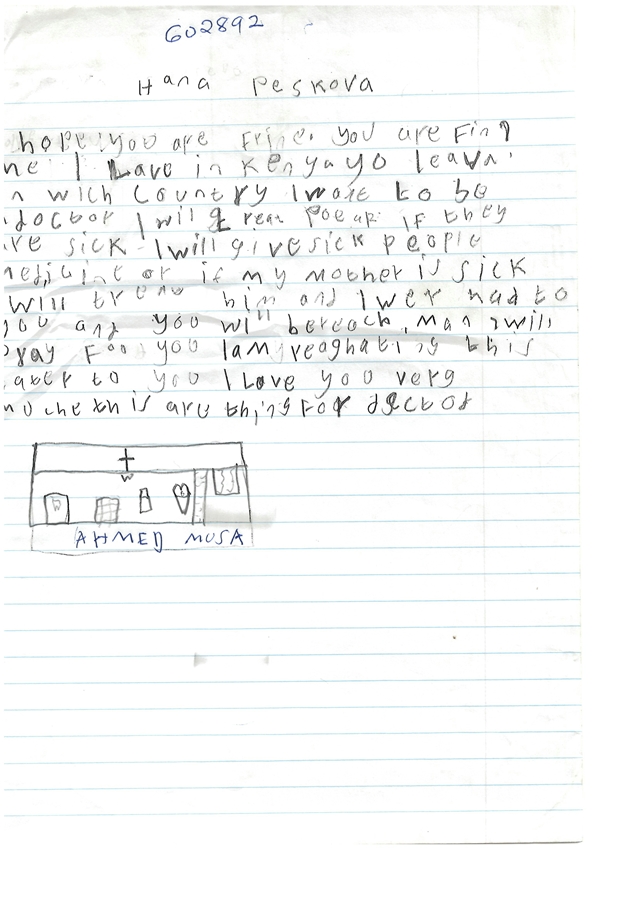 602892
Hana Peskova
hope you are Frine. you are Fin?
ne I Lave in Kenya yo leava
n wich Country I wote to be
doctor I will if they
re sick I will give sick people
medicine or if my mother is sick
will him and I wer had to
you and you will bereach, man will
pray For you I am this
ater to you I Love you very
muche th is are thing For doctor
+
W
W
AHMED MUSA